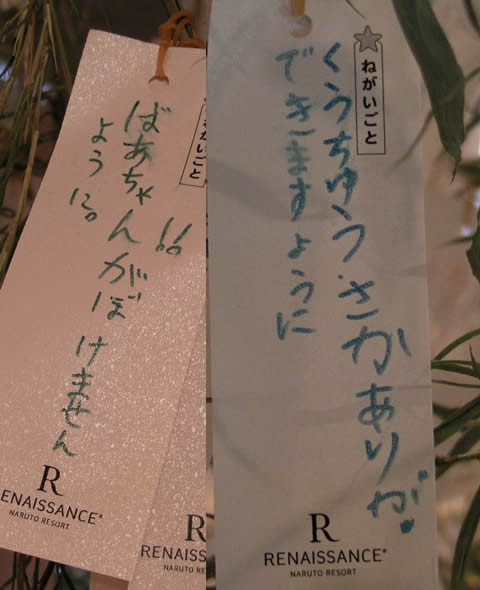 ねがいごと
!!
ばあちゃんがぼけません
ように。
R
RENAISSANCE®
NARUTO RESORT
R
RENAISSANCE
NARUTO RESORT
ねがいごと
くうちゅうさかありが
できますように
R
RENAISSANCE®
NARUTO RESORT